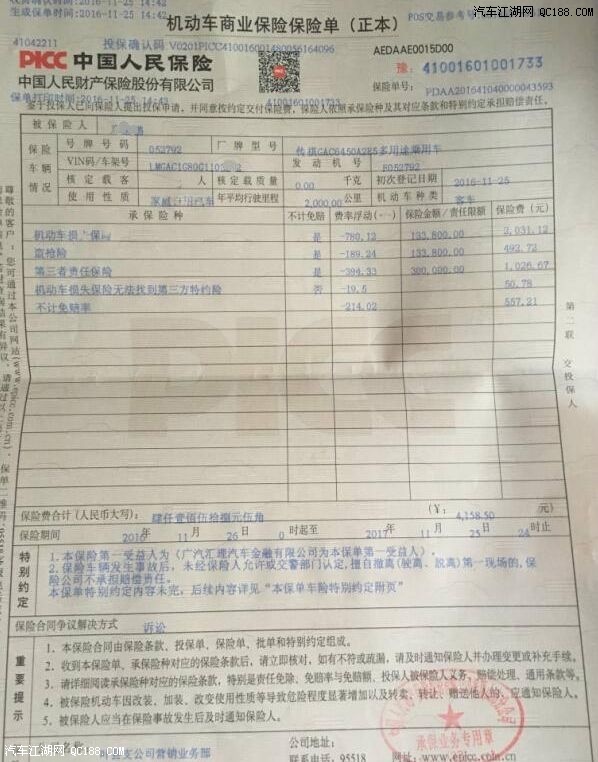 汽车江湖网 QC188.COM
收费确认时间:2016-11-25 14:42
生成保单时间:2016-11-25 14:42
POS交易参考号
机动车商业保险保险单（正本）
投保确认码 V0201PICC410016001480056164096
41042211
AEDAAE0015D00
PICC 中国人民保险
豫: 41001601001733
中国人民财产保险股份有限公司
保险单号: PDAA201641040000043593
保单打印时间:2016-11-25 14:42
41001601001733
鉴于投保人已向保险人提出投保申请，并同意按约定交付保险费，保险人依照承保险种及其对应条款和特别约定承担赔偿责任。
被保险人
保险车辆情况
号牌号码 052792 厂牌型号 传祺GAC6450A2S5多用途乘用车
VIN码/车架号 LMGAC1G80G110 2 发动机号 8052792
核定载客 人 核定载质量 0.00 千克 初次登记日期 2016-11-25
使用性质 家庭自用汽车 年平均行驶里程 2,000.00 公里 机动车种类 客车
承保险种 不计免赔 费率浮动(+-) 保险金额/责任限额 保险费(元)
机动车损 保 是 -780.12 133,800.00 2,031.12
盗抢险 是 -189.24 133,800.00 492.72
第三者责任保险 是 -394.33 300,000.00 1,026.67
机动车损失保险无法找到第三方特约险 否 -19.5 50.78
不计免赔率 -214.02 557.21
第二联 交投保人
保险费合计(人民币大写): 肆仟壹佰伍拾捌元伍角 (￥: 4,158.50 元)
保险期间 2016 年 11 月 26 日 0 时起至 2017 年 11 月 25 日 24 时止
特别约定
1.本保险第一受益人为（广汽汇理汽车金融有限公司为本保单第一受益人）。
2.保险车辆发生事故后，未经保险人允许或交警部门认定，擅自撤离(驶离、脱离)第一现场的,保
险公司不承担赔偿责任。
本保单特别约定内容未完，后续内容详见“本保单车险特别约定附页”
保险合同争议解决方式 诉讼
重要提示
1. 本保险合同由保险条款、投保单、保险单、批单和特别约定组成。
2. 收到本保险单、承保险种对应的保险条款后，请立即核对，如有不符或疏漏，请及时通知保险人并办理变更或补充手续。
3. 请详细阅读承保险种对应的保险条款，特别是责任免除、免赔率与免赔额、投保人被保险人义务、赔偿处理、通用条款等。
4. 被保险机动车因改装、加装、改变使用性质等导致危险程度显著增加以及转卖、转让、赠送他人的，应通知保险人。
5. 被保险人应当在保险事故发生后及时通知保险人。
承保业务专用章
公司地址:
支公司营销业务部
联系电话: 95518
网址: www.epicc.com.cn
汽车江湖网 QC188.COM